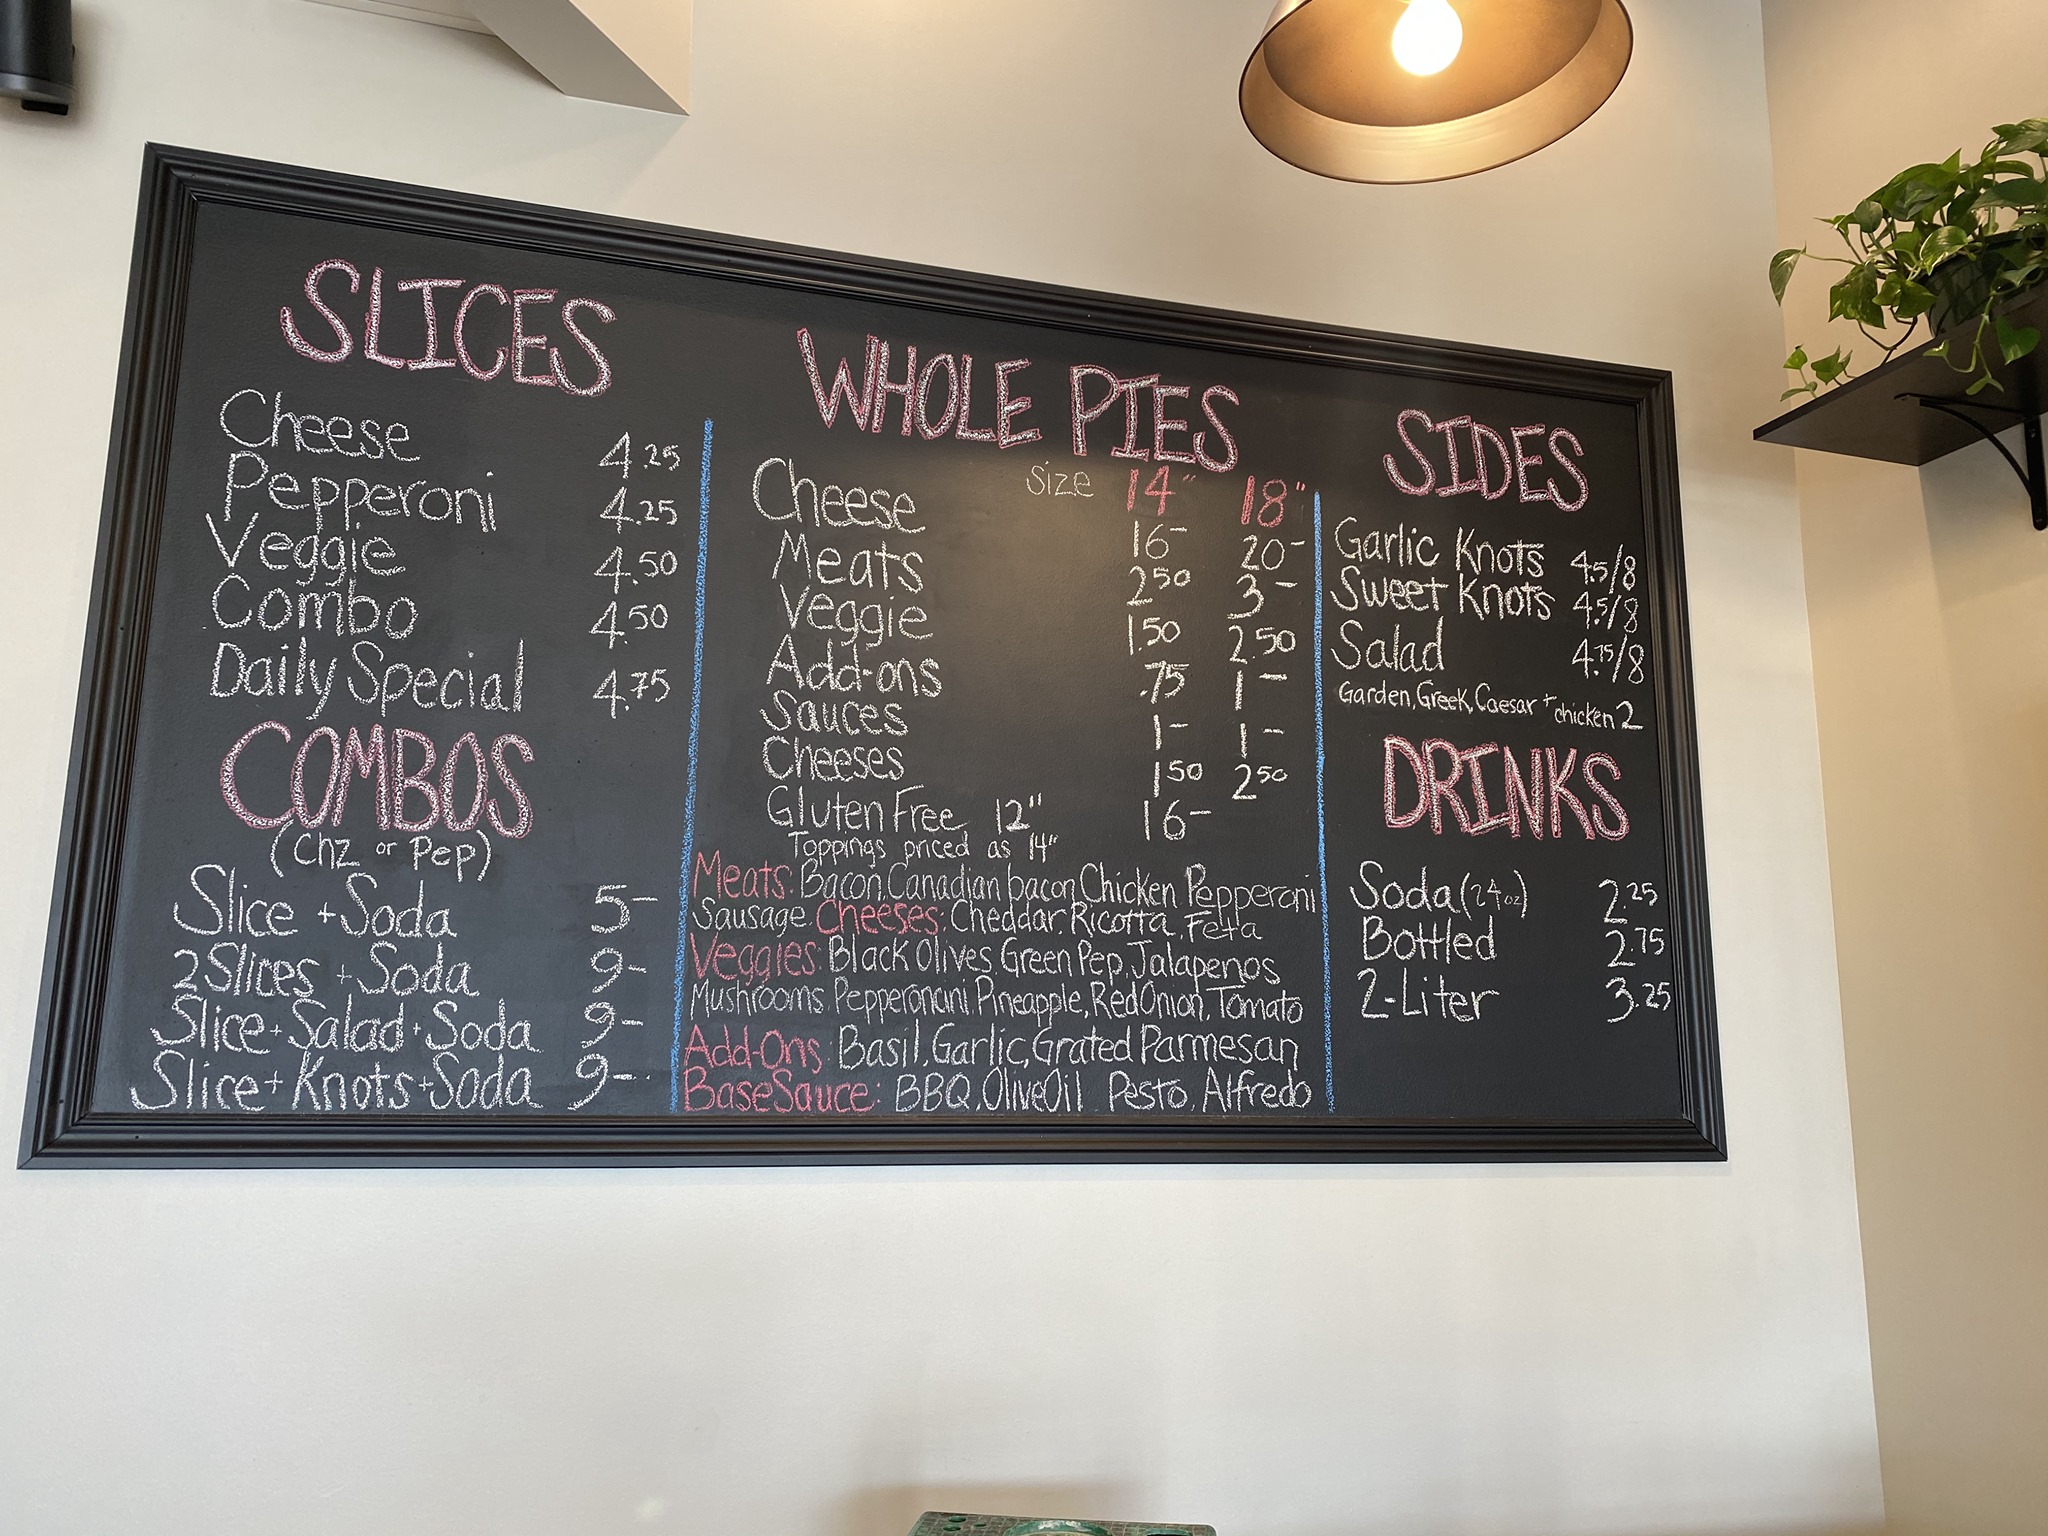 SLICES
Cheese 4.25
Pepperoni 4.25
Veggie 4.50
Combo 4.50
Daily Special 4.75
COMBOS
(Chz or Pep)
Slice + Soda 5-
2 Slices + Soda 9-
Slice + Salad + Soda 9-
Slice + Knots + Soda 9-
WHOLE PIES
Size 14" 18"
Cheese 16- 20-
Meats 2.50 3-
Veggie 1.50 2.50
Add-ons .75 1-
Sauces 1- 1-
Cheeses 1.50 2.50
Gluten Free 12" 16-
Toppings priced as 14"
Meats: Bacon, Canadian bacon, Chicken, Pepperoni
Sausage. Cheeses: Cheddar, Ricotta, Feta
Veggies: Black Olives, Green Pep, Jalapenos
Mushrooms, Pepperoncini, Pineapple, Red Onion, Tomato
Add-Ons: Basil, Garlic, Grated Parmesan
Base Sauce: BBQ, Olive Oil Pesto, Alfredo
SIDES
Garlic Knots 4.5/8
Sweet Knots 4.5/8
Salad 4.75/8
Garden, Greek, Caesar + chicken 2
DRINKS
Soda (24oz) 2.25
Bottled 2.75
2-Liter 3.25